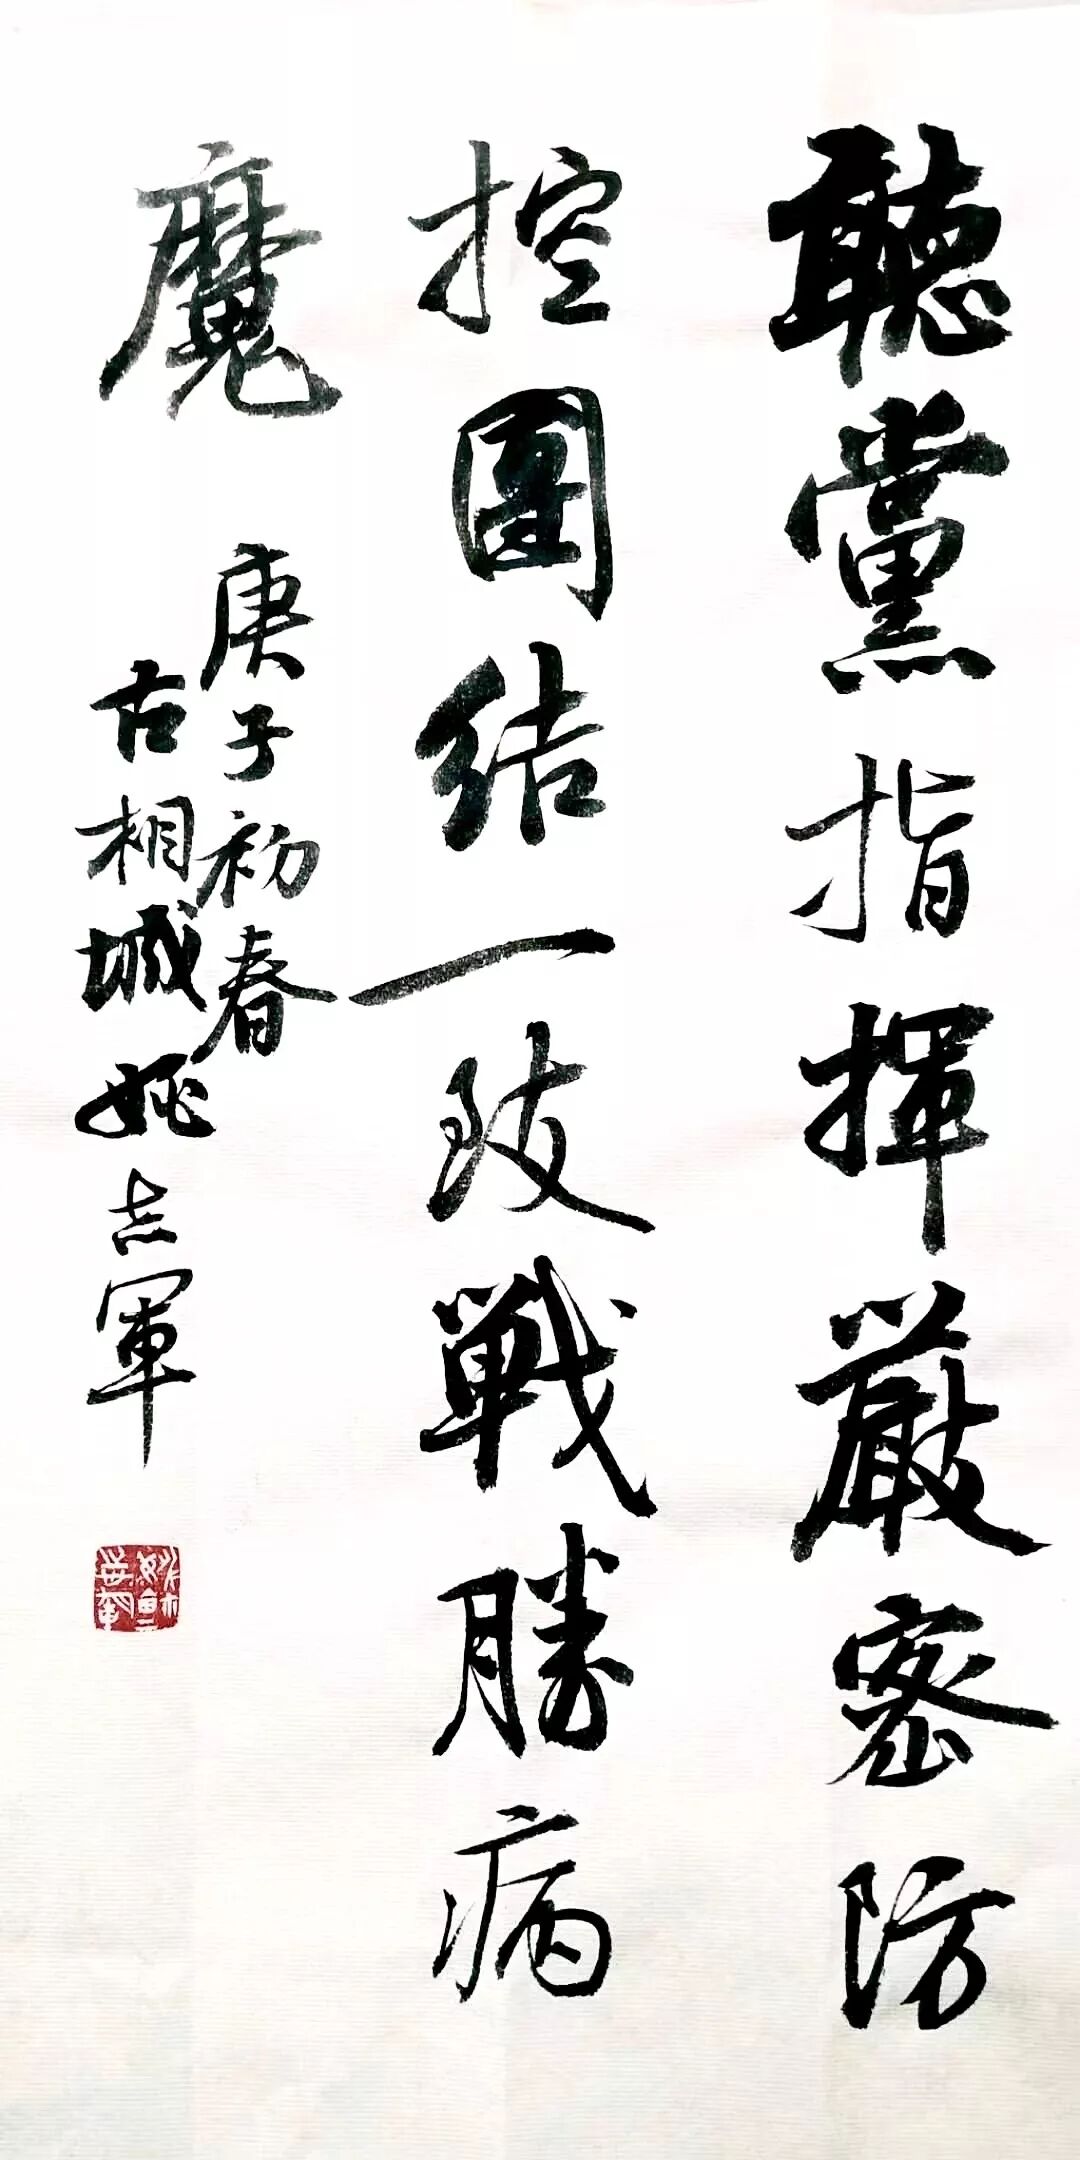 聽黨指揮嚴密防
控團結一致戰勝病
魔
庚子初春
古相城姚志軍